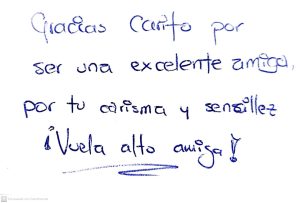 Gracias Carito por
ser una excelente amiga,
por tu carisma y sensillez
¡Vuela alto amiga!